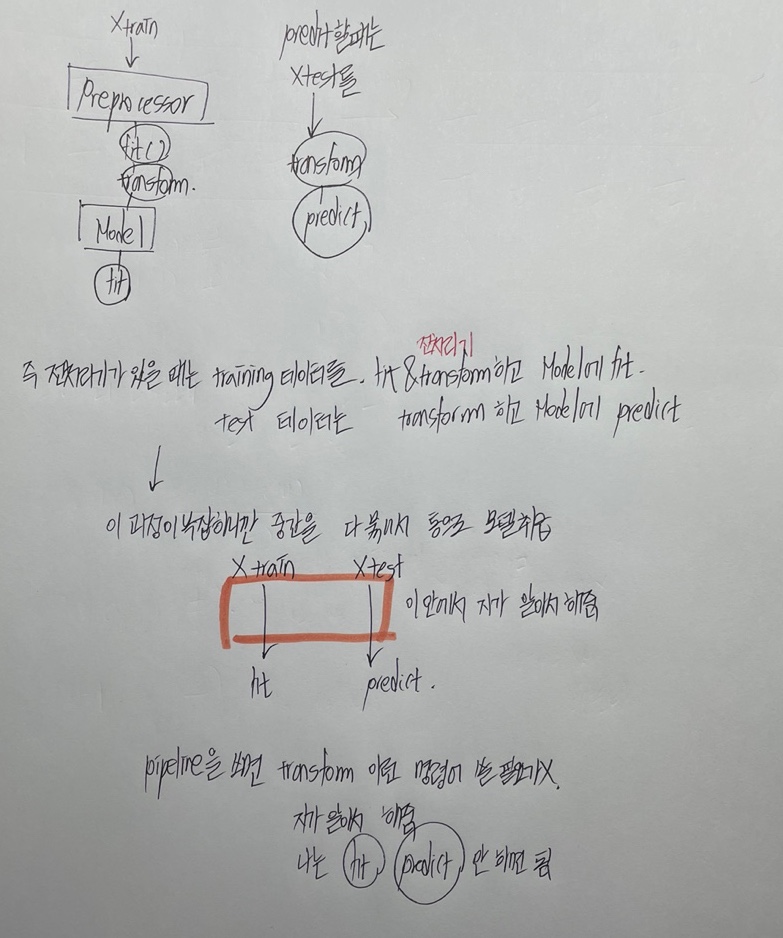 Xtrain
Preprocessor
fit()
transform.
Model
fit
predit 할때는
Xtest를
transform
predict
전처리기
즉 전처리기가 있을 때는 training 데이터를. fit & transform하고 Model에 fit.
test 데이터는 transform하고 Model에 predict
이 과정이 복잡하니깐 중간을 다 묶어서 통으로 모델취급
Xtrain Xtest
이 안에서 지가 알아서 해줌
fit predict.
pipeline을 쓰면 transform 이런 명령어 쓸 필요가X.
지가 알아서 해줌
나는 fit, predict, 만 하면 됨